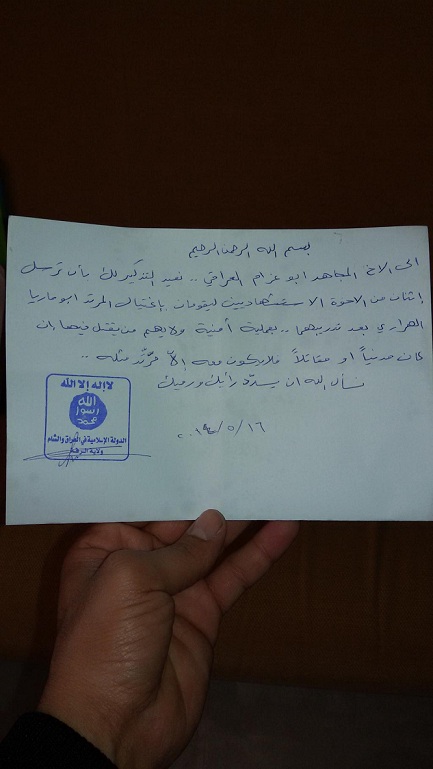 بسم الله الرحمن الرحيم
الى الاخ المجاهد ابو عزام العراقي .. نعيد التذكير لك بأن ترسل
إثنان من الاخوة الاستشهاديين ليقومان بإغتيال المرتد ابو ماريا
الهراري بعد تدريبهما .. بعملية أمنية ولايهم من يقتل فيها ان
كان مدنياً او مقاتلاً فلايكون معه إلاّ مرتد مثله ..
نسأل الله ان يسدد رأيك ورميك
٢٠١٤/٥/١٦
لا إله إلا الله
الله
رسول
محمد
الدولة الإسلامية في العراق والشام
ولاية الرقة